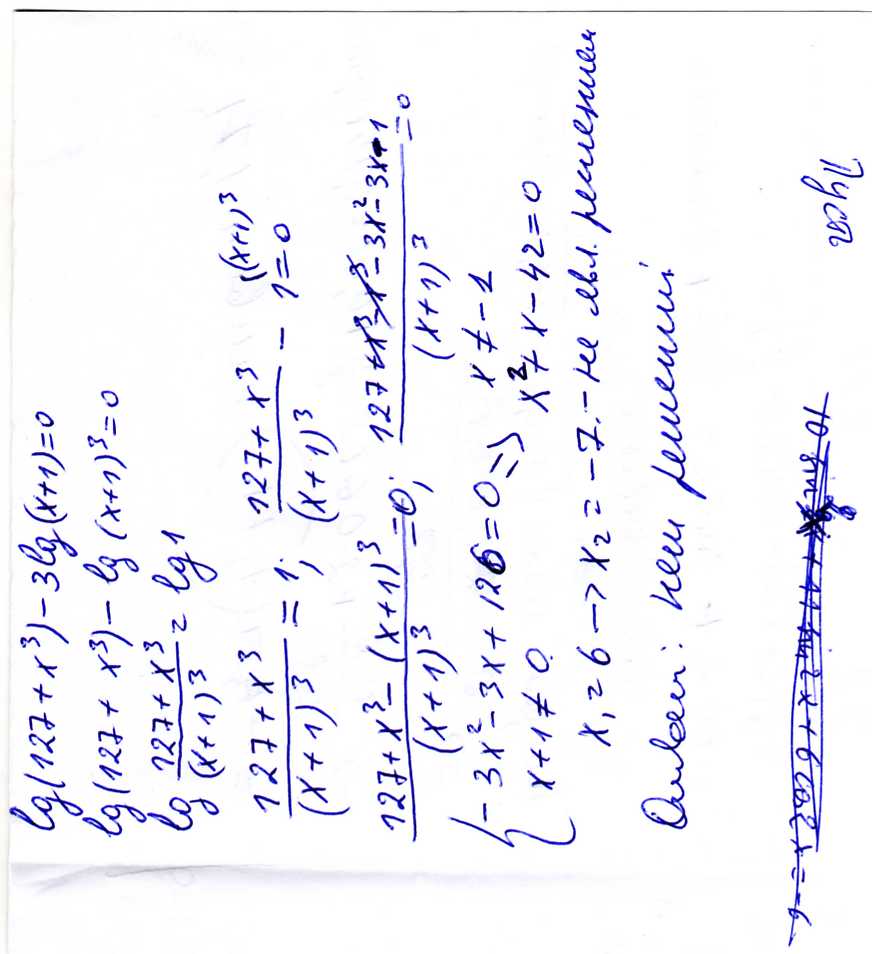 lg(127+x³)-3lg(x+1)=0
lg(127+x³)-lg(x+1)³=0
lg (127+x³)/(x+1)³ = lg1
(127+x³)/(x+1)³ = 1; (127+x³)/(x+1)³ - 1 \(x+1)³ = 0
(127+x³-(x+1)³)/(x+1)³ = 0; (127+x³-x³-3x²-3x-1)/(x+1)³ = 0
{ -3x²-3x+126=0 => x≠-1
x+1≠0 x²+x-42=0
x₁=6 -> x₂=-7.-не явл. решением
Ответ: нет решений.
Пуст